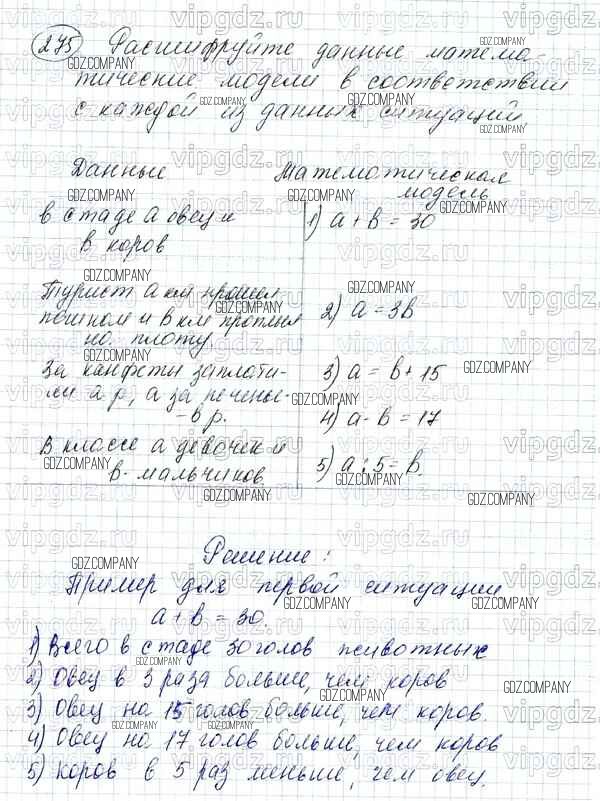 275 Расшифруйте данные матема-
тические модели в соответствии
с каждой из данных ситуаций
Данные
Математическая
модель
в стаде а овец и
в коров
1) а + в = 30
Турист а км прошел
пешком и в км проплыл
на плоту.
2) а = 3в
За конфеты заплати-
ли а р, а за печенье
- в р.
3) а = в + 15
4) а - в = 17
В классе а девочек и
в - мальчиков.
5) а : 5 = в.
Решение:
Пример для первой ситуации
а + в = 30.
1) Всего в стаде 30 голов животных
2) Овец в 3 раза больше, чем коров
3) Овец на 15 голов больше, чем коров.
4) Овец на 17 голов больше, чем коров
5) Коров в 5 раз меньше, чем овец.
vipgdz.ru
GDZ.COMPANY